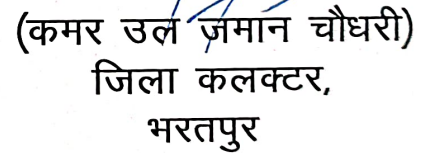 (कमर उल ज़मान चौधरी)
जिला कलक्टर,
भरतपुर